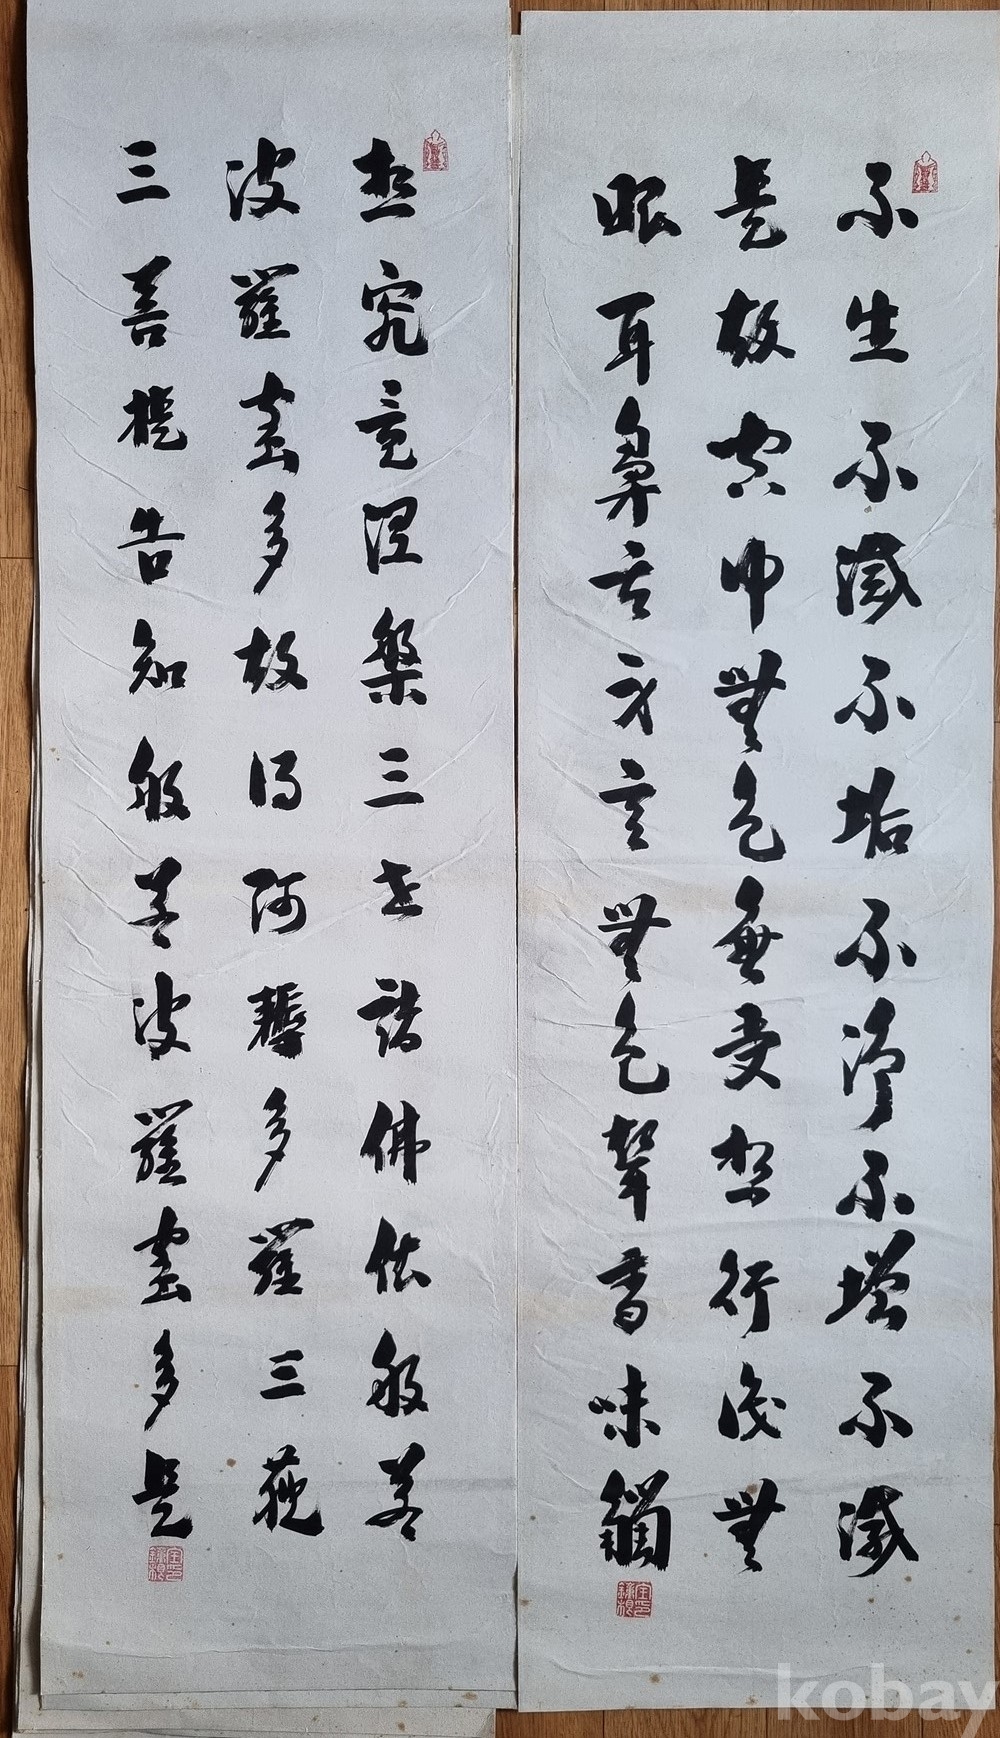 不生不滅不垢不淨不增不減
是故空中無色無受想行識無
眼耳鼻舌身意無色聲香味觸
想究竟涅槃三世諸佛依般若
波羅蜜多故得阿耨多羅三藐
三菩提告知般若波羅蜜多是
kobay